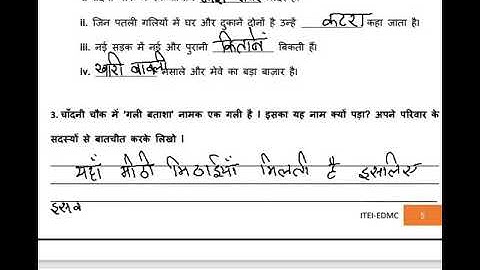 ii. जिन पतली गलियों में घर और दुकानें दोनों है उन्हें कटरा कहा जाता है।
iii. नई सड़क में नई और पुरानी किताबें बिकती हैं।
iv. खारी बावली मसाले और मेवे का बड़ा बाजार है।
3. चाँदनी चौक में 'गली बताशा' नामक एक गली है। इसका यह नाम क्यों पड़ा? अपने परिवार के
सदस्यों से बातचीत करके लिखो।
यहाँ मीठी मिठाईयाँ मिलती है इसलिए
इसक
ITEI-EDMC 5